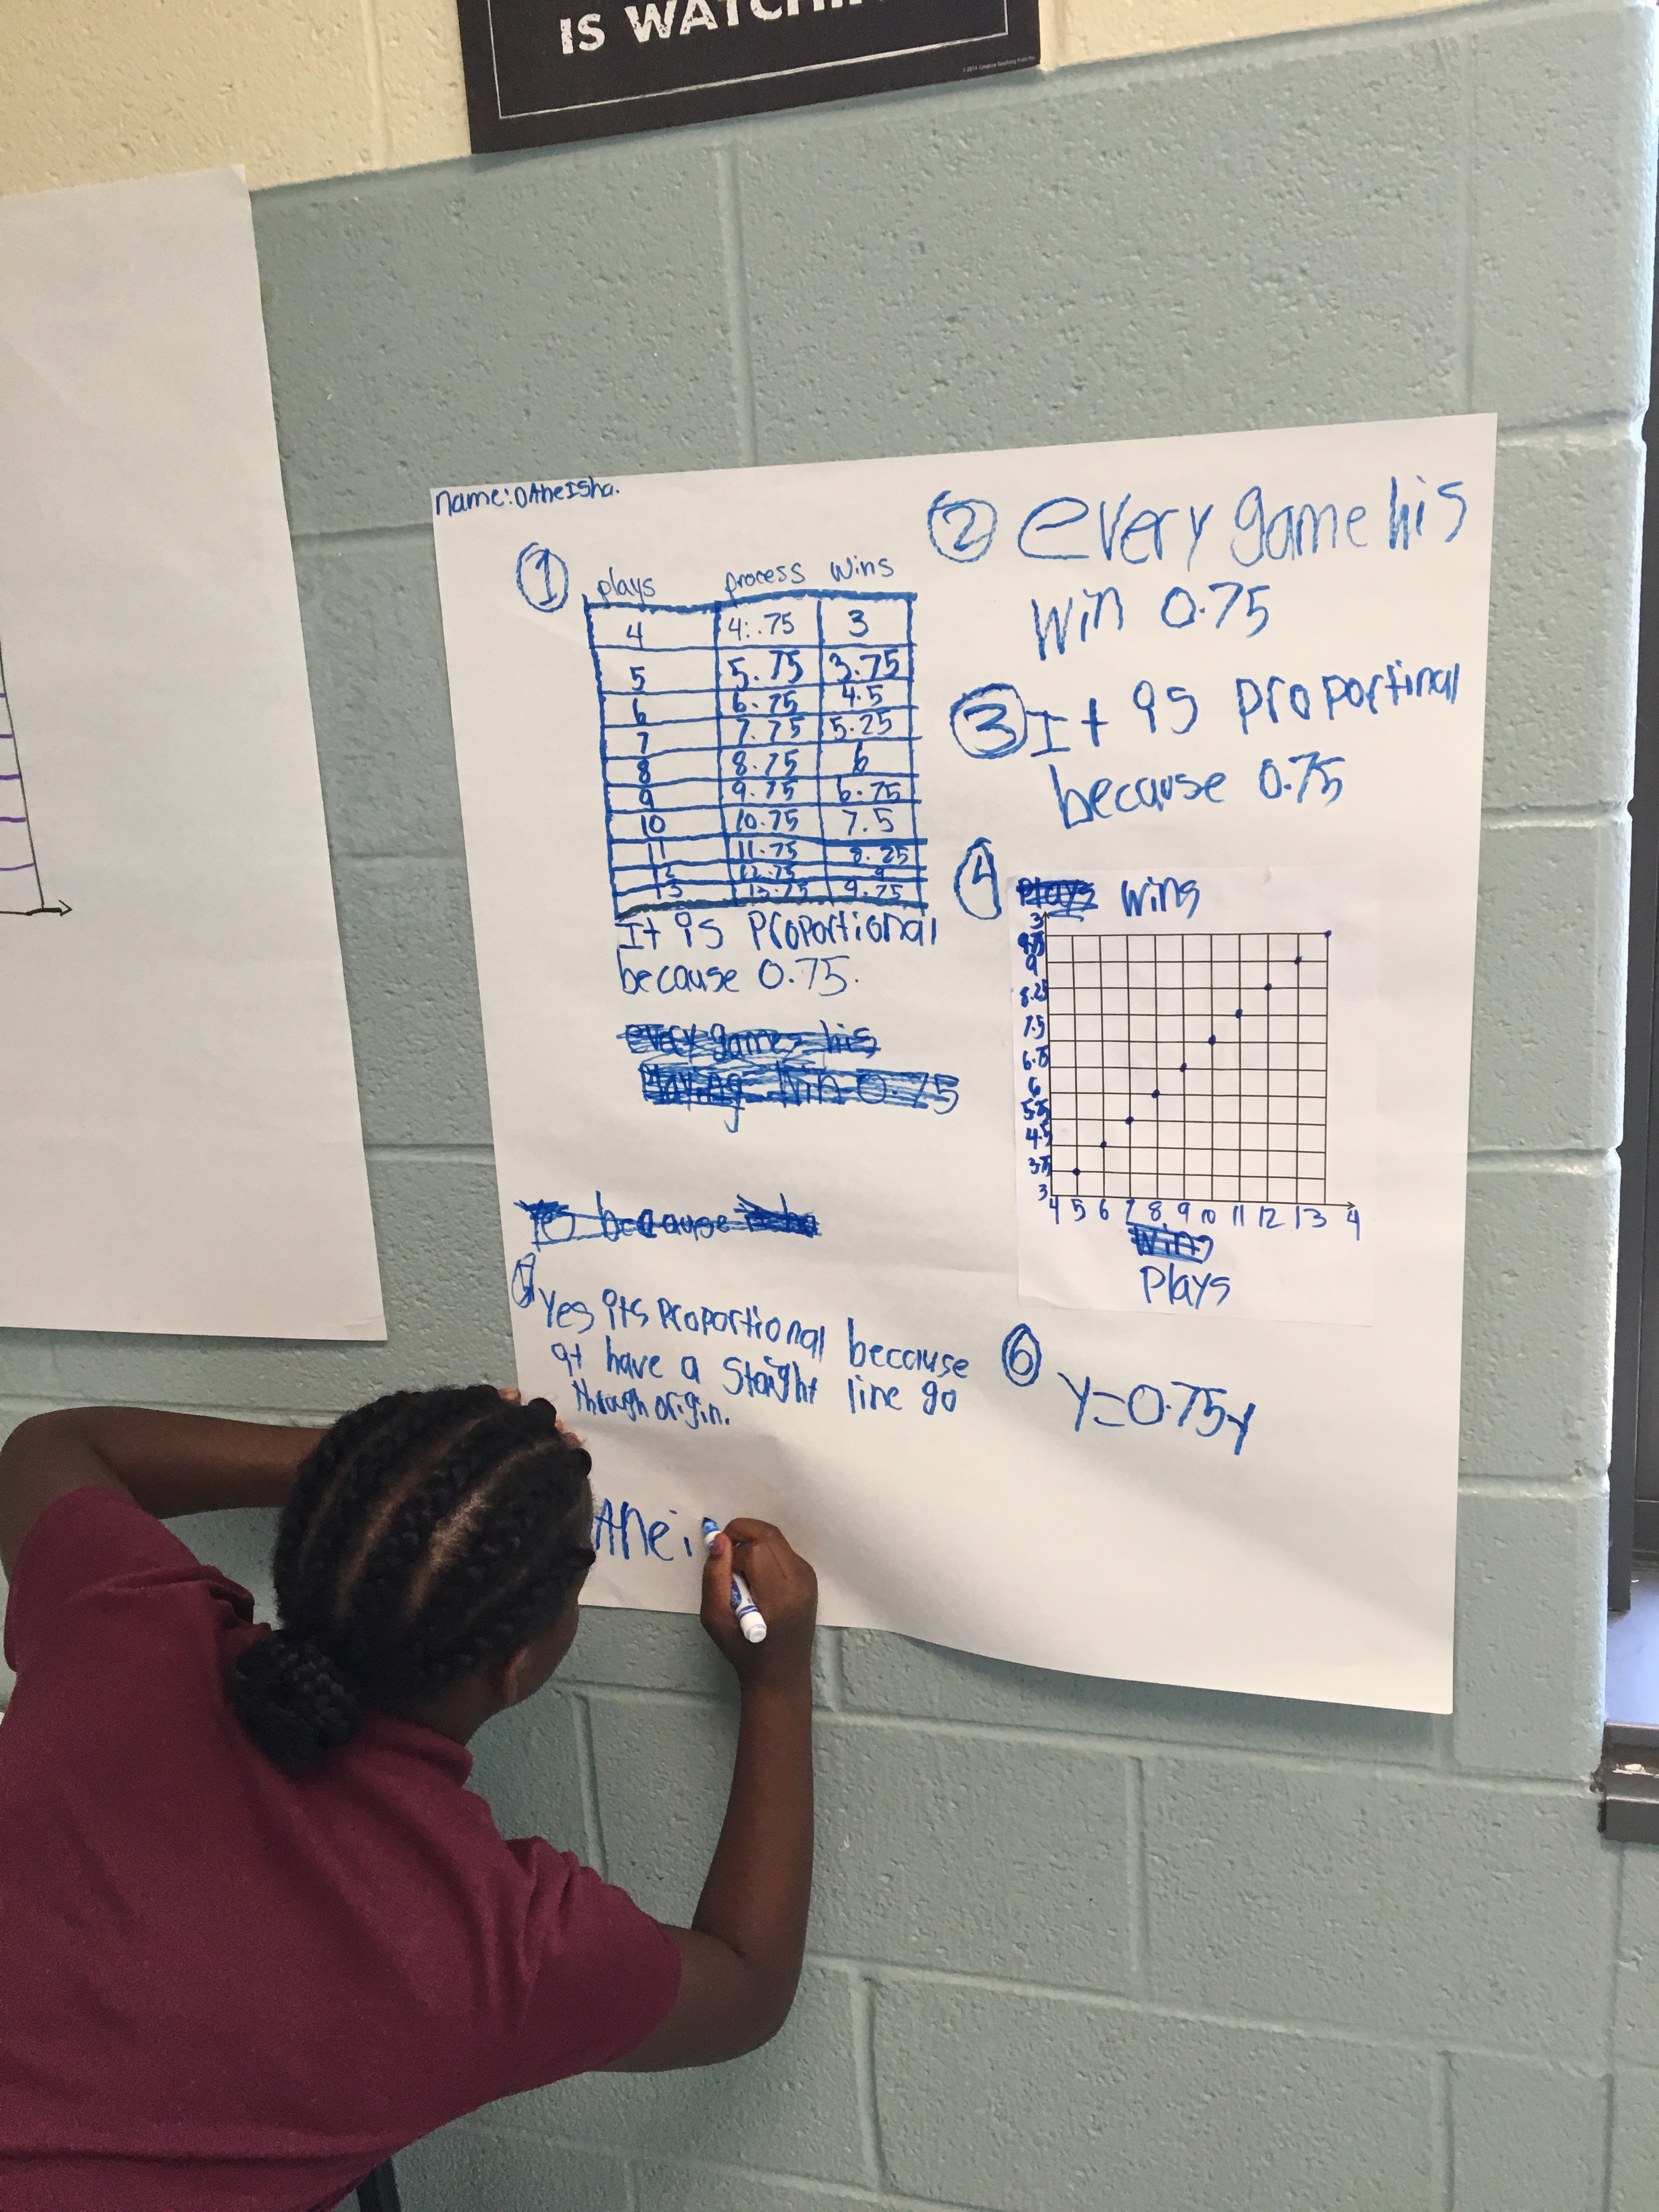 IS WATCHIN
name: DAneISha.
① plays process Wins
4 4..75 3
5 5.75 3.75
6 6.75 4.5
7 7.75 5.25
8 8.75 6
9 9.75 6.75
10 10.75 7.5
11 11.75 8.25
12 12.75 9
13 13.75 9.75
It is Proportional
because 0.75.
every games his
Playing Win 0.75
because
Yes its Proportional because
it have a Staight line go
through origin.
Anei
② every game his
Win 0.75
③ It is proportinal
because 0.75
④ Plays Wins
3
9.75
9
8.25
7.5
6.75
6
5.25
4.5
3.75
3
4 5 6 7 8 9 10 11 12 13 4
Wins
Plays
⑥ y=0.75y